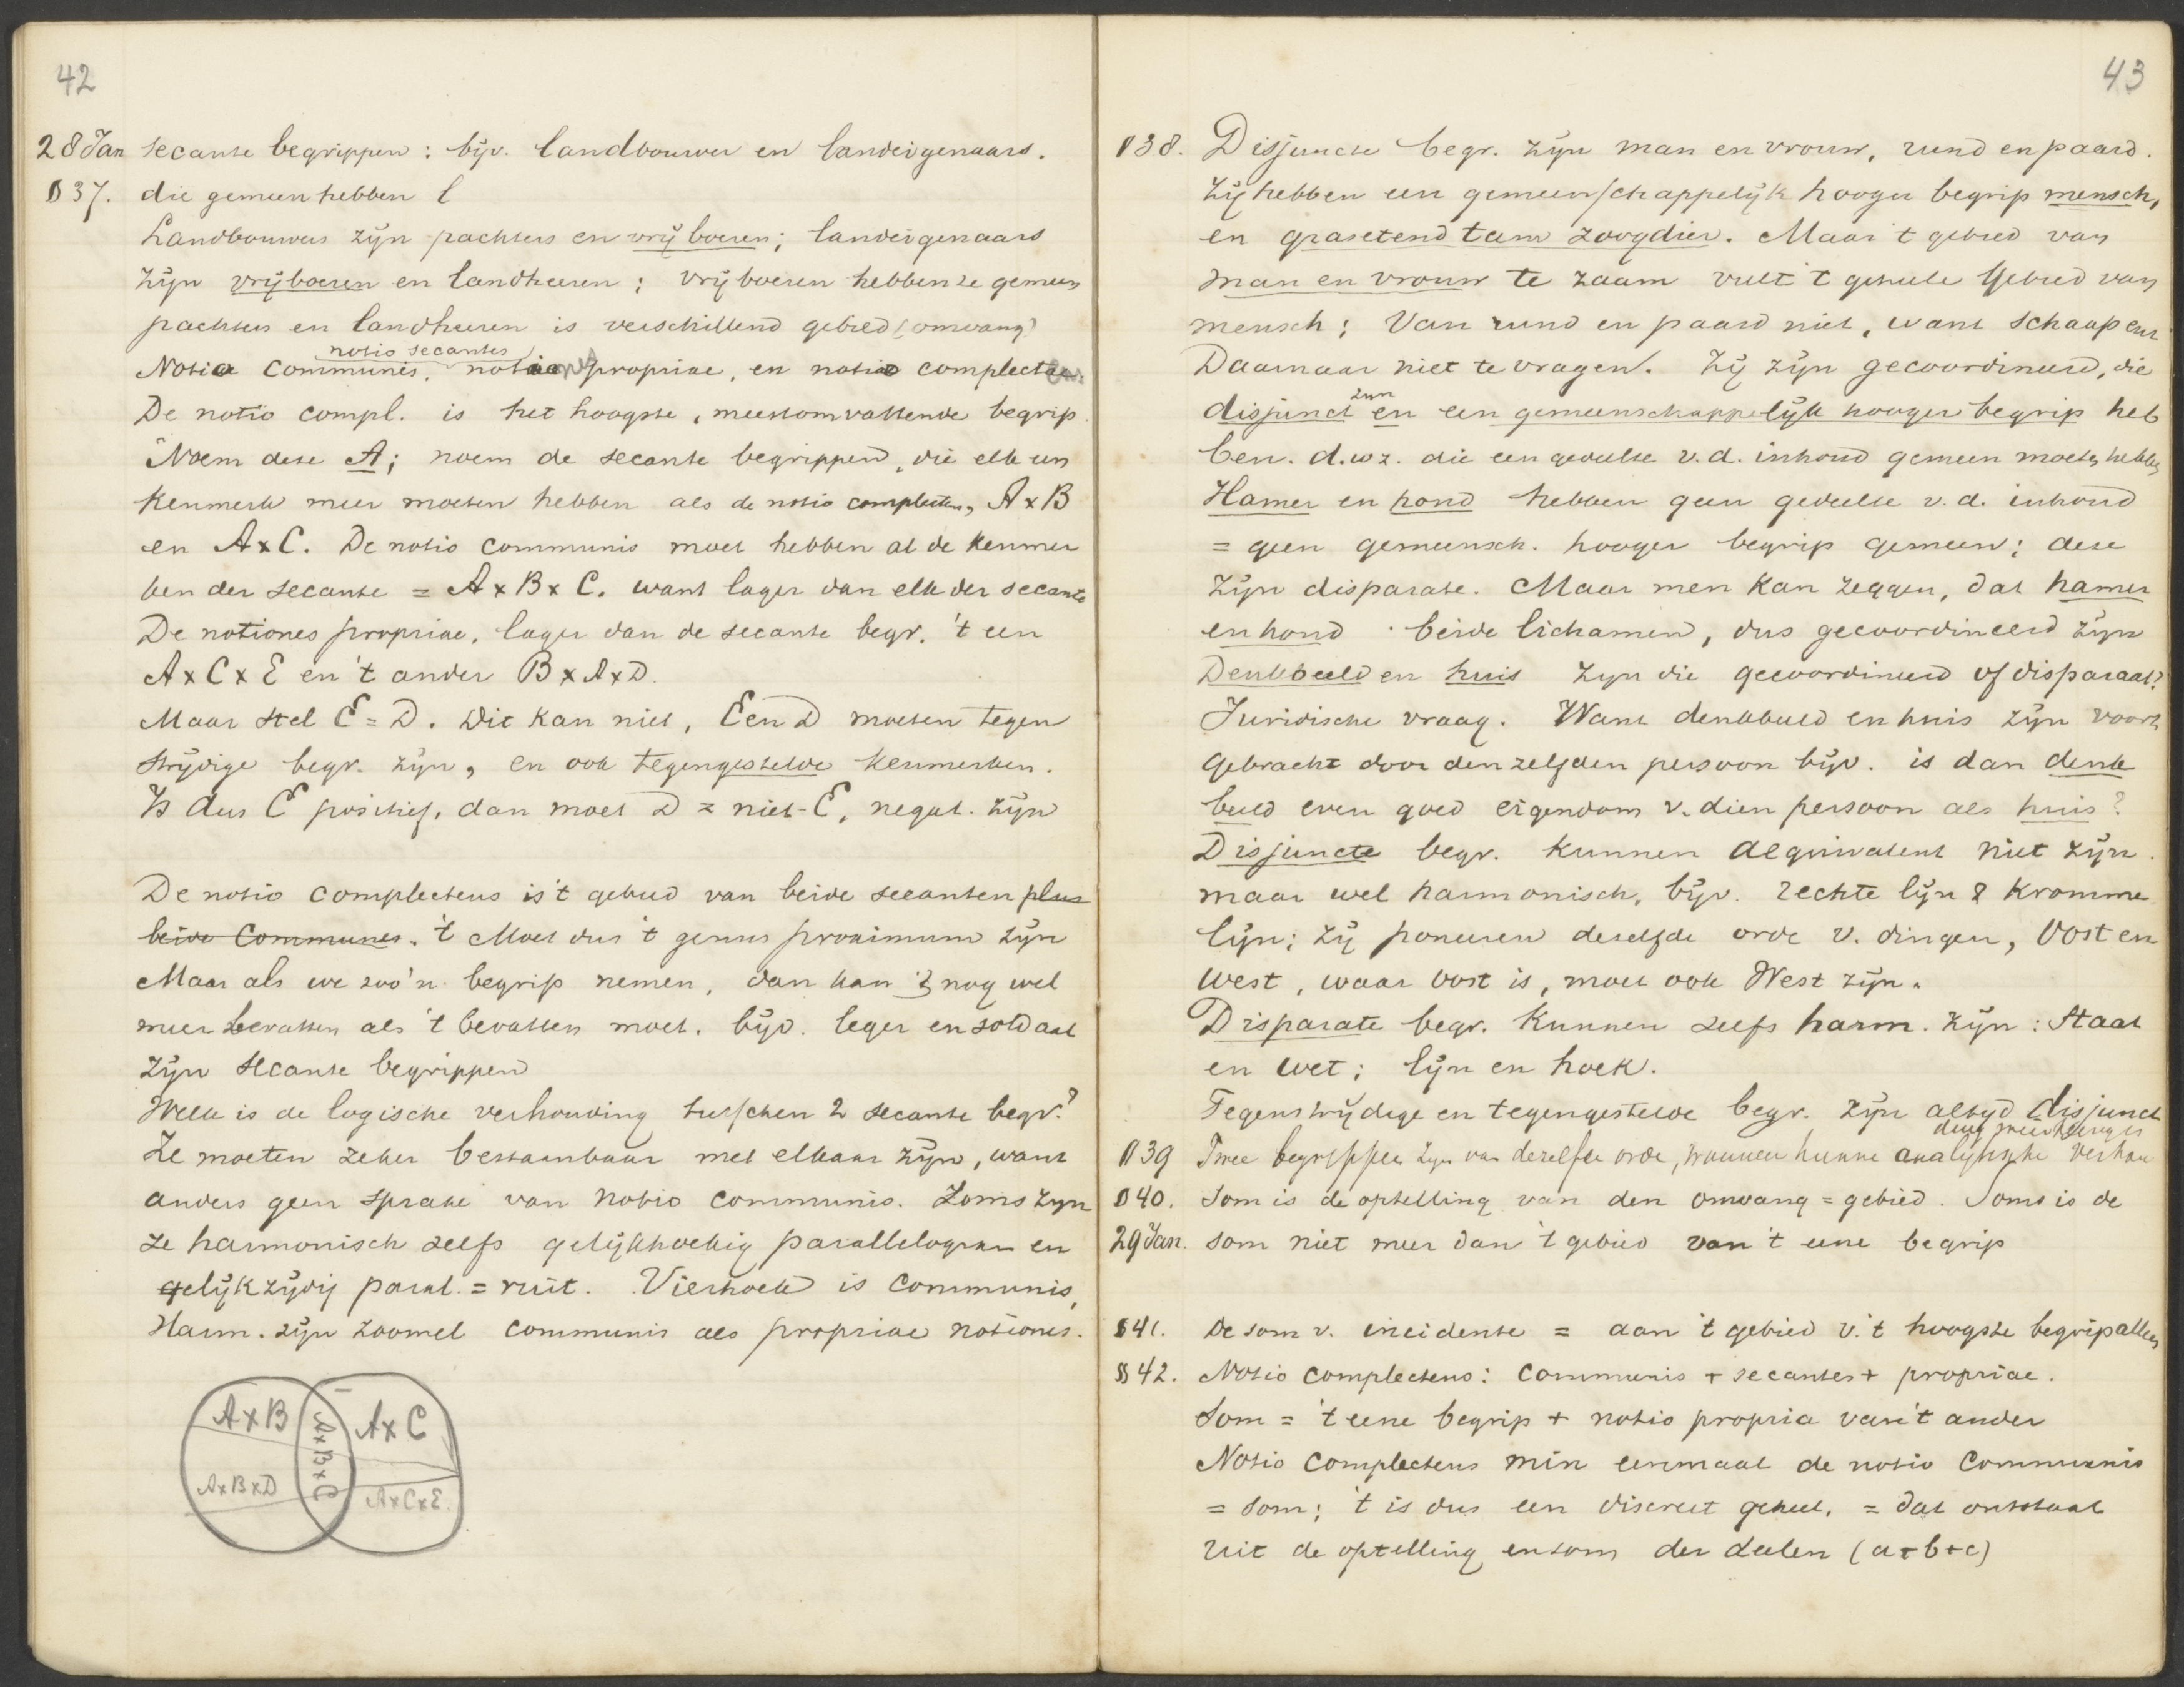 42
28 Jan secante begrippen: bijv. landbouwer en landeigenaars.
§ 37. die gemeen hebben l
Landbouwers zijn pachters en vrijboeren; landeigenaars
zijn vrijboeren en landheeren; vrijboeren hebben ze gemeen
pachters en landheeren is verschillend gebied (omvang)
notio secantes
Notio communis, notiones propriae, en notio complectens.
De notio compl. is het hoogste, meestomvattende begrip.
Noem deze A; noem de secante begrippen, die elk een
kenmerk meer moeten hebben als de notio complectens, A x B
en A x C. De notio communis moet hebben al de kenmer
ken der secante = A x B x C. want lager dan elk der secante
De notiones propriae, lager dan de secante begr. 't een
A x C x E en 't ander B x A x D.
Maar stel E = D. Dit kan niet, E en D moeten tegen
strijdige begr. zijn, en ook tegengestelde kenmerken.
Is dus E positief, dan moet D = niet-E, negat. zijn
De notio complectens is 't gebied van beide secanten plus
beide Communes. 't Moet dus 't genus proximum zijn
Maar als we zoo'n begrip nemen, dan kan 't nog wel
meer bevatten als 't bevatten moet. bijv. leger en soldaat
zijn secante begrippen
Welk is de logische verhouding tusschen 2 secante begr.?
Ze moeten zeker bestaanbaar met elkaar zijn, want
anders geen sprake van notio communis. Soms zijn
ze harmonisch zelfs gelijkhoekig parallelogram en
gelijkzijdig paral. = ruit. Vierhoek is communis,
Harm. zijn zoowel communis als propriae notiones.
A x B
A x C
A x B x C
A x B x D
A x C x E.
43
§ 38. Disjuncte begr. zijn man en vrouw, rund en paard.
Zij hebben een gemeenschappelijk hooger begrip mensch,
en grasetend tam zoogdier. Maar 't gebied van
man en vrouw te zaam vult 't geheele gebied van
mensch; Van rund en paard niet, want schaap enz
Daarnaar niet te vragen. Zij zijn gecoordineerd, die
zijn
disjunct en een gemeenschappelijk hooger begrip heb
ben. d.w.z. die een gedeelte v.d. inhoud gemeen moeten hebben
Hamer en hond hebben geen gedeelte v.d. inhoud
= geen gemeensch. hooger begrip gemeen; deze
zijn disparate. Maar men kan zeggen, dat hamer
en hond beide lichamen, dus gecoordineerd zijn
Denkbeeld en huis zijn die gecoordineerd of disparaat?
Juridische vraag. Want denkbeeld en huis zijn voort
gebracht door denzelfden persoon bijv. is dan denk
beeld even goed eigendom v. dien persoon als huis?
Disjuncte begr. kunnen aequivalent niet zijn.
maar wel harmonisch, bijv. rechte lijn & kromme
lijn; zij poneeren dezelfde orde v. dingen, Oost en
West, waar oost is, moet ook West zijn.
Disparate begr. kunnen zelfs harm. zijn: Staat
en wet; lijn en hoek.
Tegenstrijdige en tegengestelde begr. zijn altijd disjunct
§ 39 Twee begrippen zijn van dezelfde orde, wanneer hunne analytische verhou
§ 40. Som is de optelling van den omvang = gebied. Soms is de
29 Jan. som niet meer dan 't gebied van 't eene begrip
§ 41. De som v. incidente = aan 't gebied v. 't hoogste begrip alleen
§ 42. Notio complectens: communis + secantes + propriae.
Som = 't eene begrip + notio propria van 't ander
Notio complectens min eenmaal de notio communis
= som; 't is dus een discreet geheel. = dat ontstaat
uit de optelling en som der deelen (a+b+c)